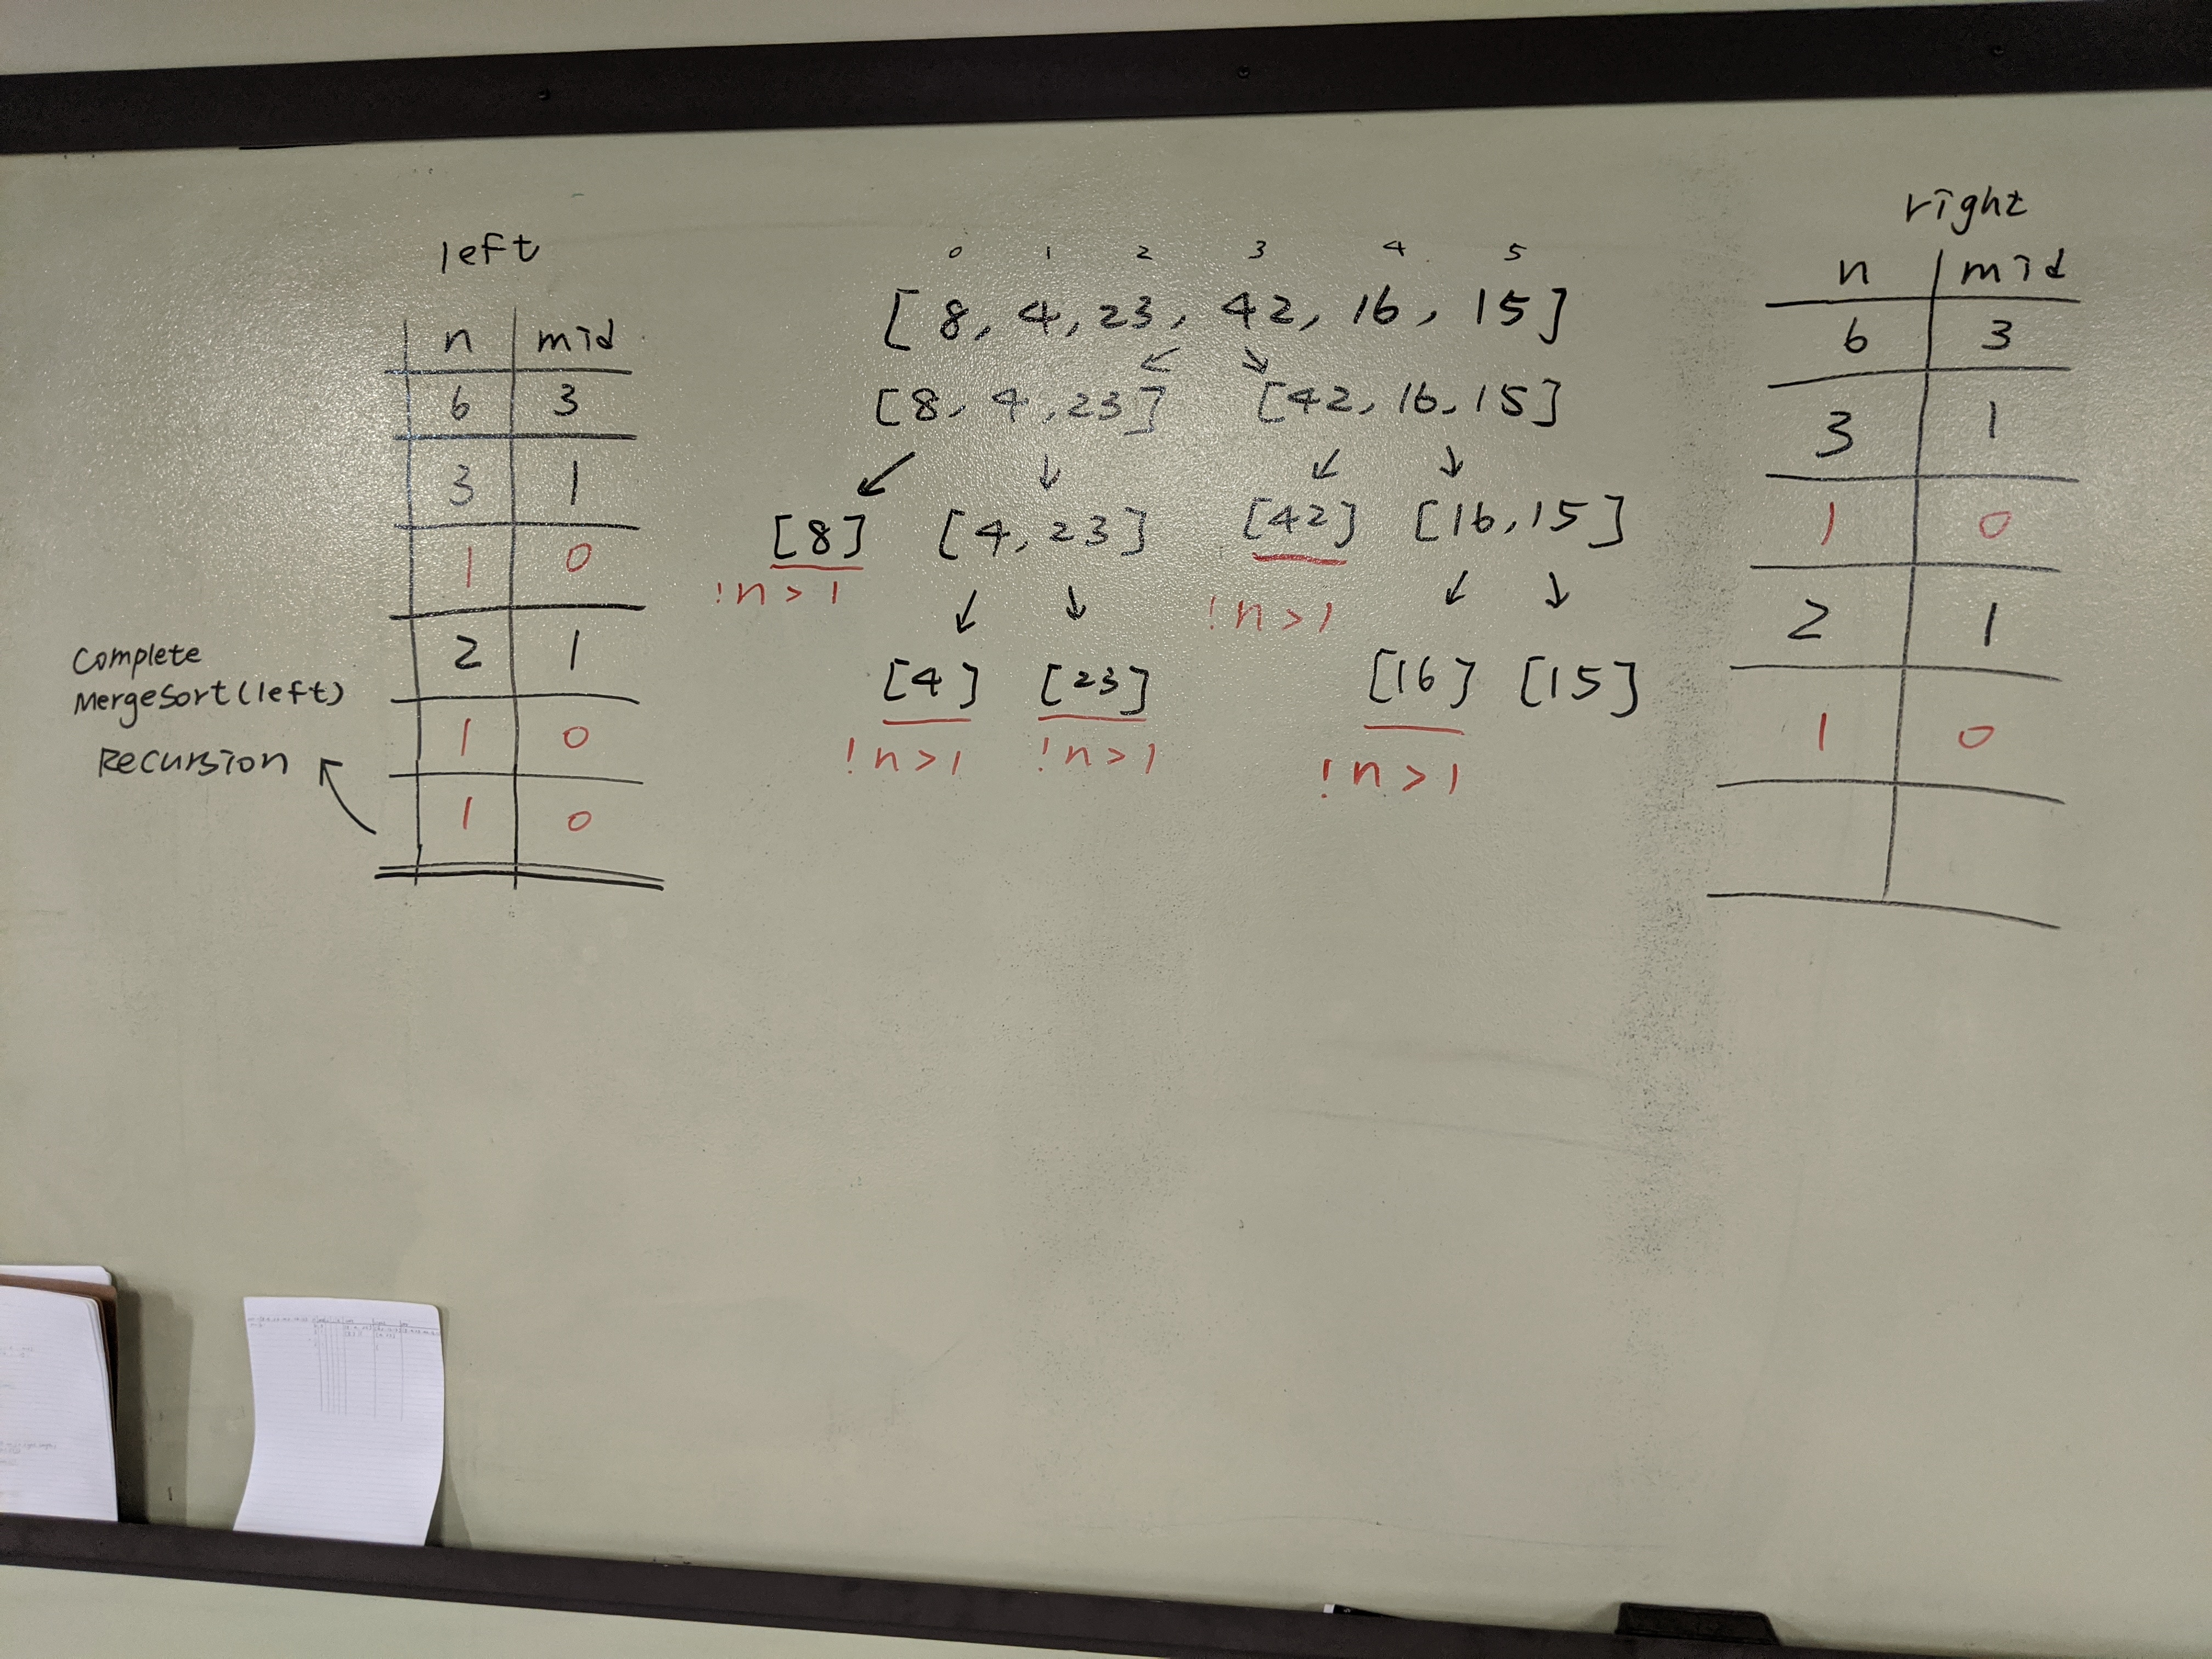 left
n mid
6 3
3 1
1 0
2 1
1 0
1 0
Complete
MergeSort(left)
Recursion
0 1 2 3 4 5
[8, 4, 23, 42, 16, 15]
[8, 4, 23] [42, 16, 15]
[8] [4, 23] [42] [16, 15]
!n > 1 !n > 1
[4] [23] [16] [15]
!n > 1 !n > 1 !n > 1
right
n mid
6 3
3 1
1 0
2 1
1 0